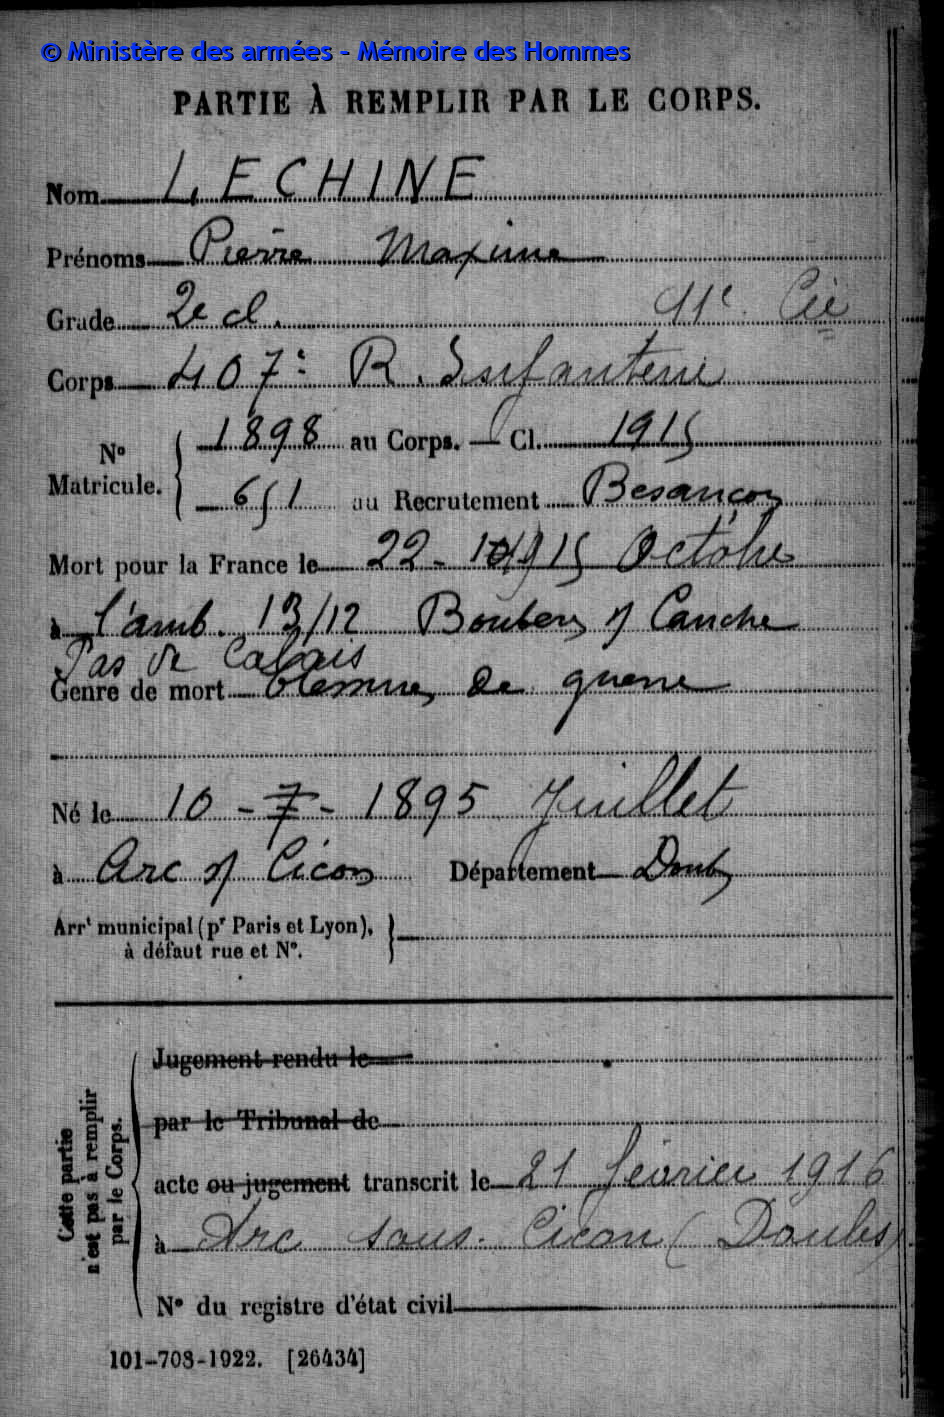 © Ministère des armées - Mémoire des Hommes
PARTIE À REMPLIR PAR LE CORPS.
Nom LECHINE
Prénoms Pierre Maxime
Grade 2e cl. 11e Cie
Corps 407e R. Infanterie
N° Matricule. { 1898 au Corps. — Cl. 1915
651 au Recrutement Besançon
Mort pour la France le 22 - 10 1915 Octobre
à l'amb. 13/12 Boubers s/ Canche
Pas de Calais
Genre de mort blessures de guerre
Né le 10 - 7 - 1895 Juillet
à Arc s/ Cicon Département Doubs
Arrt municipal (pr Paris et Lyon),
à défaut rue et N°.
Cette partie
n'est pas à remplir
par le Corps.
Jugement rendu le
par le Tribunal de
acte ou jugement transcrit le 21 février 1916
à Arc sous-Cicon (Doubs)
N° du registre d'état civil
101-708-1922. [26434]